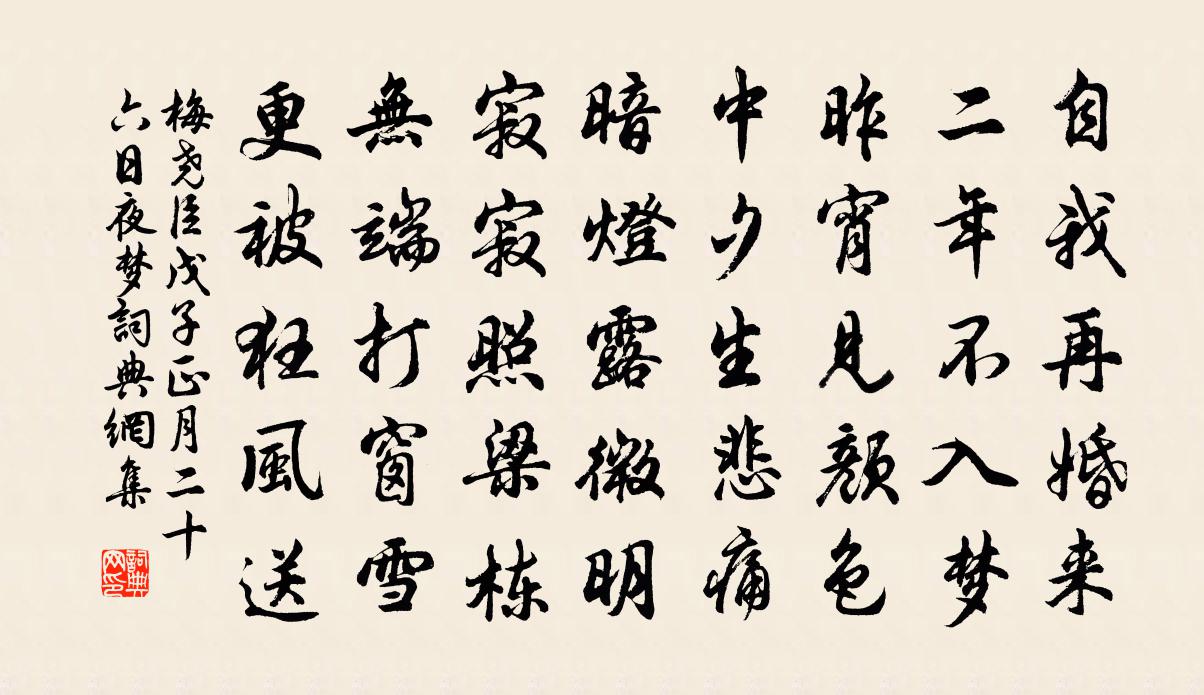 自我再婚来
二年不入梦
昨宵見顔色
中夕生悲痛
暗燈露微明
寂寂照梁栋
無端打窗雪
更被狂風送
梅尧臣戊子正月二十
六日夜梦詞典網集
詞典网印